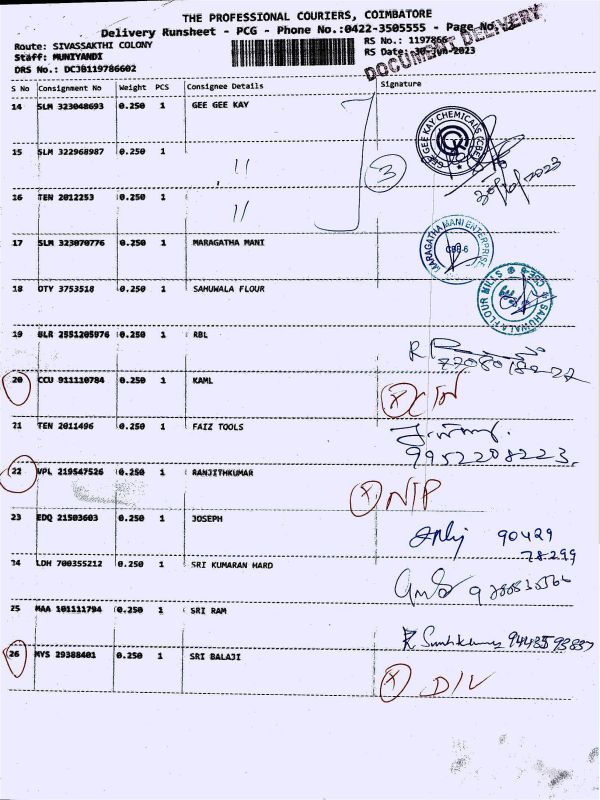 THE PROFESSIONAL COURIERS, COIMBATORE
Delivery Runsheet - PCG - Phone No.:0422-3505555 - Page No.
Route: SIVASSAKTHI COLONY
RS No.: 1197866
Staff: MUNIYANDI
RS Date: 30-Jun-2023
DRS No.: DCJB119786602
DOCUMENT DELIVERY
S No Consignment No Weight PCS Consignee Details Signature
14 SLM 323048693 0.250 1 GEE GEE KAY
GEE GEE KAY CHEMICALS (CBE)
15 SLM 322968987 0.250 1 11
3
16 TEN 2012253 0.250 1 11
17 SLM 323070776 0.250 1 MARAGATHA MANI
MARAGATHA MANI ENTERPRISE
CBE-6
18 OTY 3753518 0.250 1 SAHUWALA FLOUR
SAHUWALA FLOUR MILLS CBE-8
19 BLR 2551205976 0.250 1 RBL
20 CCU 911110784 0.250 1 KAML
X
21 TEN 2011496 0.250 1 FAIZ TOOLS
9952208223.
22 VPL 219547526 0.250 1 RANJITHKUMAR
X NTP
23 EDQ 21503603 0.250 1 JOSEPH
90429
78299
24 LDH 700355212 0.250 1 SRI KUMARAN HARD
25 MAA 101111794 0.250 1 SRI RAM
26 MYS 29388401 0.250 1 SRI BALAJI
X D/L